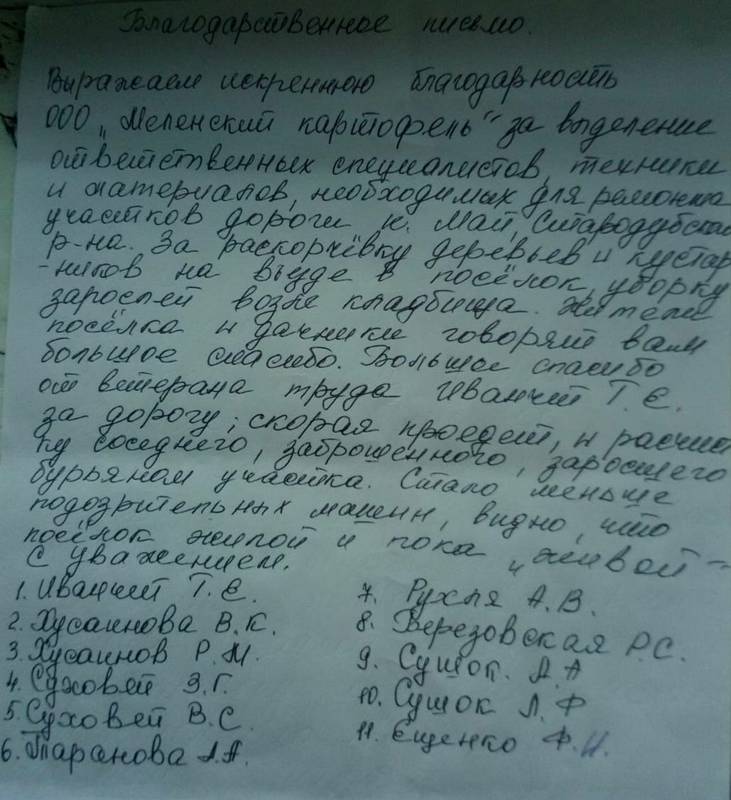 Благодарственное письмо.
Выражаем искреннюю благодарность
ООО „Меленский картофель" за выделение
ответственных специалистов, техники
и материалов, необходимых для ремонта
участков дороги п. Май, Стародубского
р-на. За раскорчёвку деревьев и кустар
-ников на въезде в посёлок, уборку
зарослей возле кладбища. Жители
посёлка и дачники говорят вам
большое спасибо. Большое спасибо
от ветерана труда Иванчий Т. Е.
за дорогу; скорая проедет, и расчист
ку соседнего, заброшенного, заросшего
бурьяном участка. Стало меньше
подозрительных машин, видно, что
посёлок жилой и пока „живой"
С уважением.
1. Иванчий Т. Е.
2. Хусаинова В. К.
3. Хусаинов Р. М.
4. Суховей З. Г.
5. Суховей В. С.
6. Таранова А. А.
7. Рухля А. В.
8. Березовская Р. С.
9. Сушок. А. А
10. Сушок Л. Ф
11. Ещенко Ф. И.